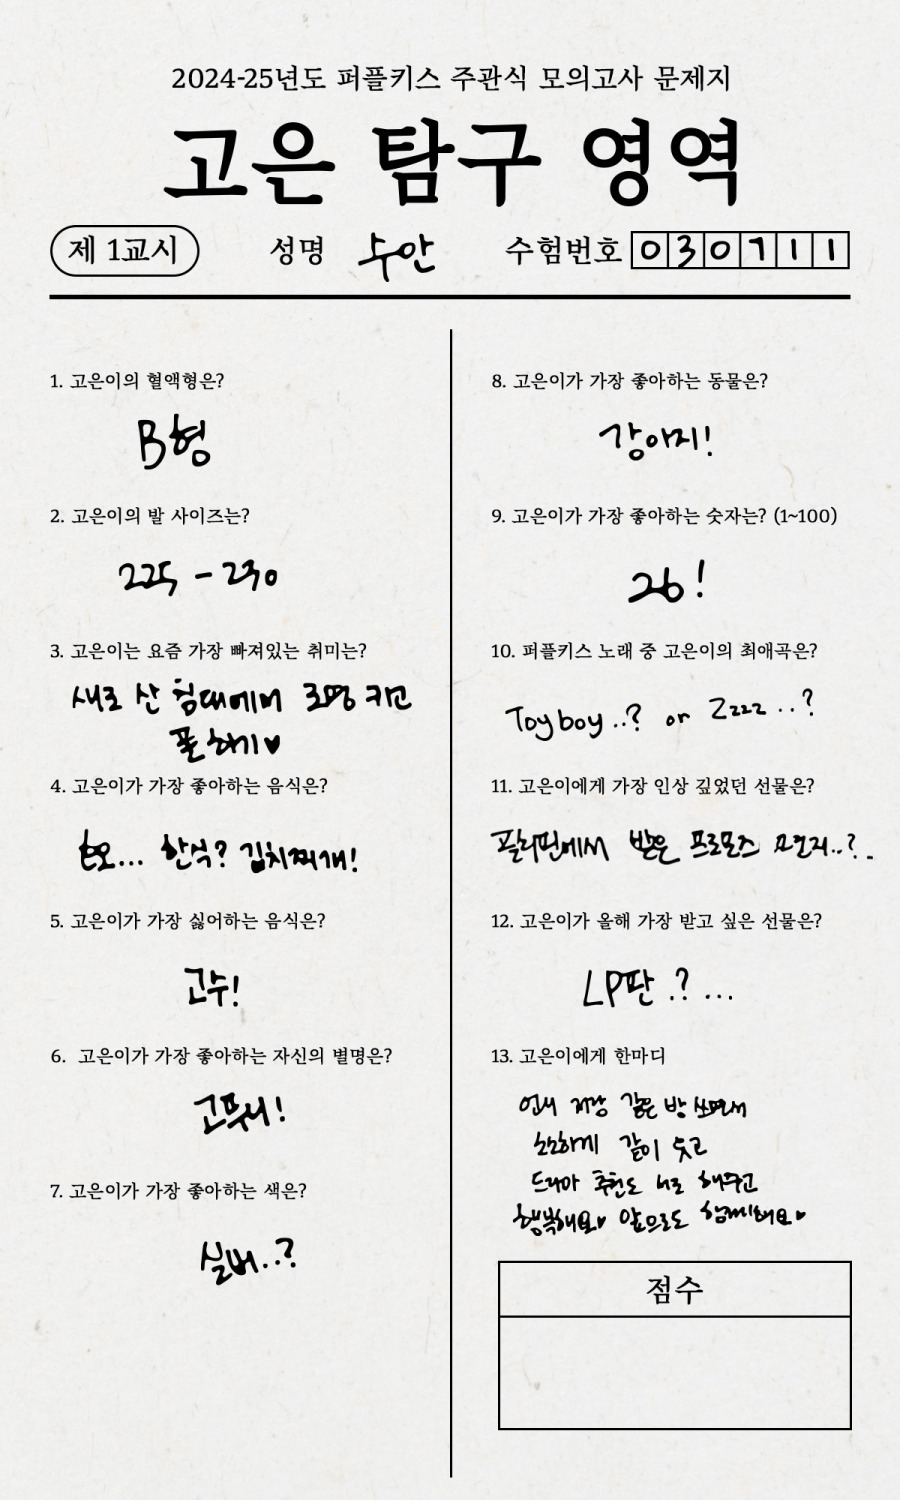 2024-25년도 퍼플키스 주관식 모의고사 문제지
고은 탐구 영역
제 1교시
성명 수안
수험번호 030711
1. 고은이의 혈액형은?
B형
2. 고은이의 발 사이즈는?
225 - 230
3. 고은이는 요즘 가장 빠져있는 취미는?
새로 산 침대에서 조명 키고
폰 하기♥
4. 고은이가 가장 좋아하는 음식은?
한식? 김치찌개!
5. 고은이가 가장 싫어하는 음식은?
고수!
6. 고은이가 가장 좋아하는 자신의 별명은?
고뚜니!
7. 고은이가 가장 좋아하는 색은?
실버..?
8. 고은이가 가장 좋아하는 동물은?
강아지!
9. 고은이가 가장 좋아하는 숫자는? (1~100)
26!
10. 퍼플키스 노래 중 고은이의 최애곡은?
Toy boy..? or Zzzz..?
11. 고은이에게 가장 인상 깊었던 선물은?
필리핀에서 받은 프로포즈
12. 고은이가 올해 가장 받고 싶은 선물은?
LP판.?...
13. 고은이에게 한마디
언니 저랑 같은 방 쓰면서
소소하게 같이 웃고
드라마 추천도 서로 해주고
행복해요♥ 앞으로도 함께해요♥
점수